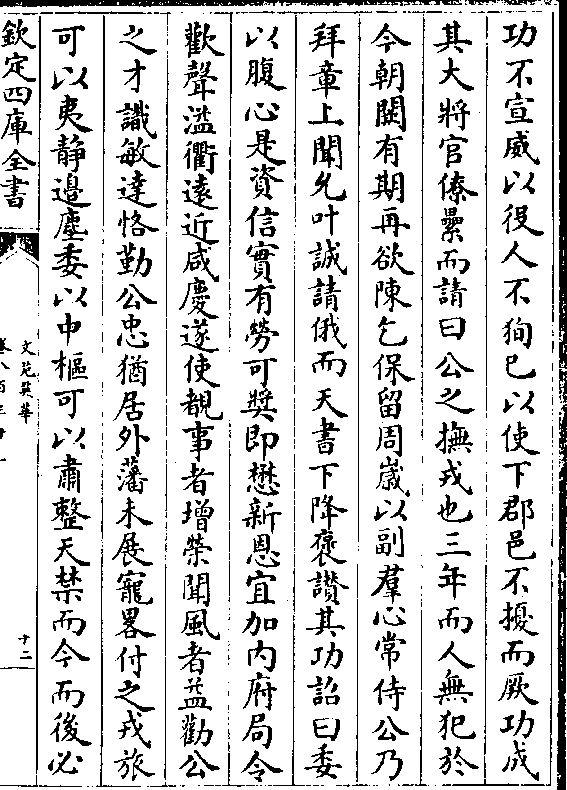 功不宣威以役人不狥已以使下郡邑不擾而厥功成
其大將官僚壘而請曰公之撫戎也三年而人無犯於
今朝闕有期再欲陳乞保留周歲以副羣心常侍公乃
拜章上聞允叶誠請俄而天書下降褒讃其功詔曰委
以腹心是資信實有勞可奬即懋新恩宜加内府局令
歡聲溢衢遠近咸慶遂使覩事者增榮聞風者益勸公
之才識敏達恪勤公忠猶居外藩未展寵畧付之戎旅
可以夷静邉塵委以中樞可以肅整天禁而今而後必
欽定四庫全書
文苑英華
十二